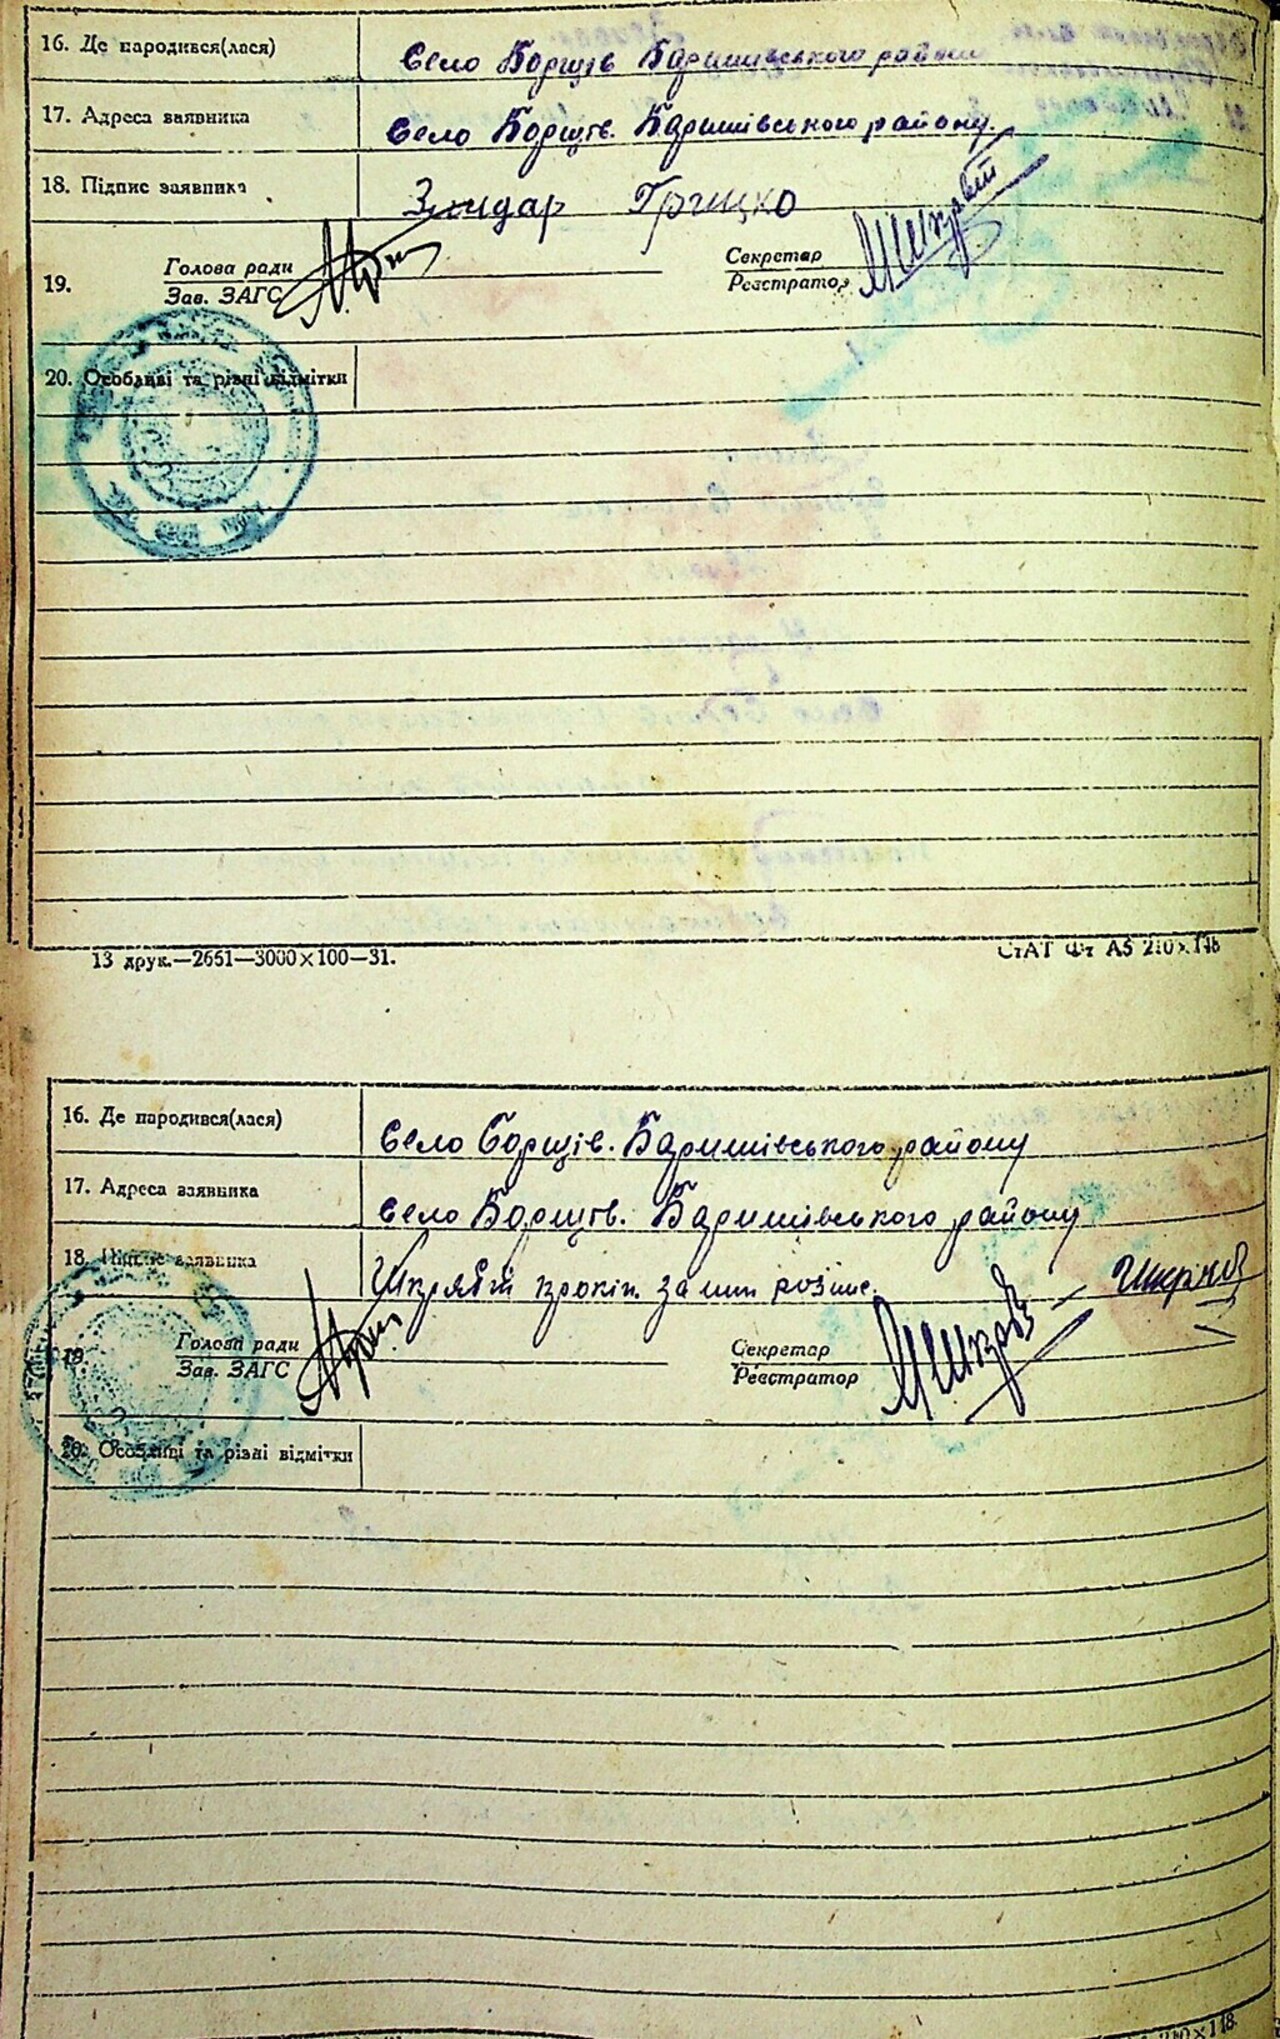 16. Де народився(лася) село Борщів Баришівського району
17. Адреса заявника село Борщів. Баришівського району.
18. Підпис заявника Злидар Грицко
Голова ради Секретар
19.
Зав. ЗАГС Реєстратор
20. Особливі та різні відмітки
13 друк.—2651—3000×100—31. СтАТ Фт А5 210×148
16. Де народився(лася) село Борщів. Баришівського району
17. Адреса заявника село Борщів. Баришівського району
18. Підпис заявника Шкрябій
Голова ради Секретар
19.
Зав. ЗАГС Реєстратор
20. Особливі та різні відмітки